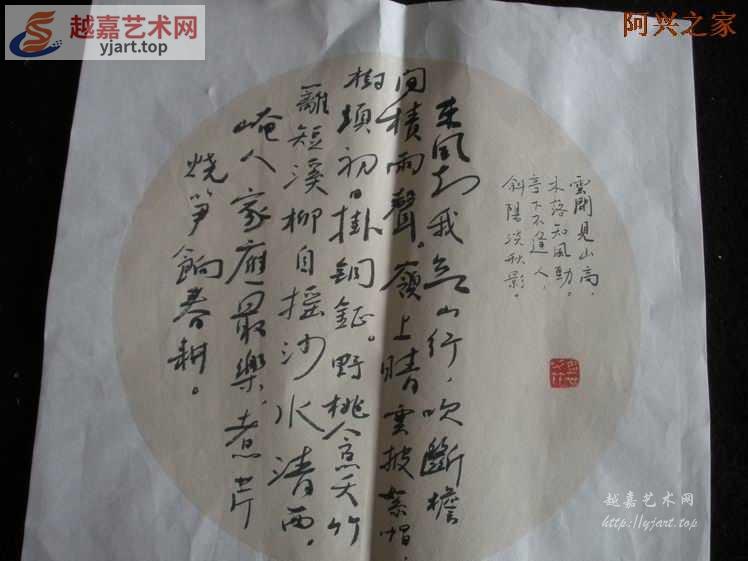 越嘉艺术网
yjart.top
阿兴之家
雲開見山高，
木落知風動。
亭下不逢人，
斜陽淡秋影。
東風知我欲山行，吹斷檐
间積雨聲。嶺上晴雲披絮帽，
樹頭初日掛銅鉦。野桃含笑竹
籬短溪柳自摇沙水清西。
崦人家應最樂，煮芹
烧笋餉春耕。
越嘉艺术网
http://yjart.top